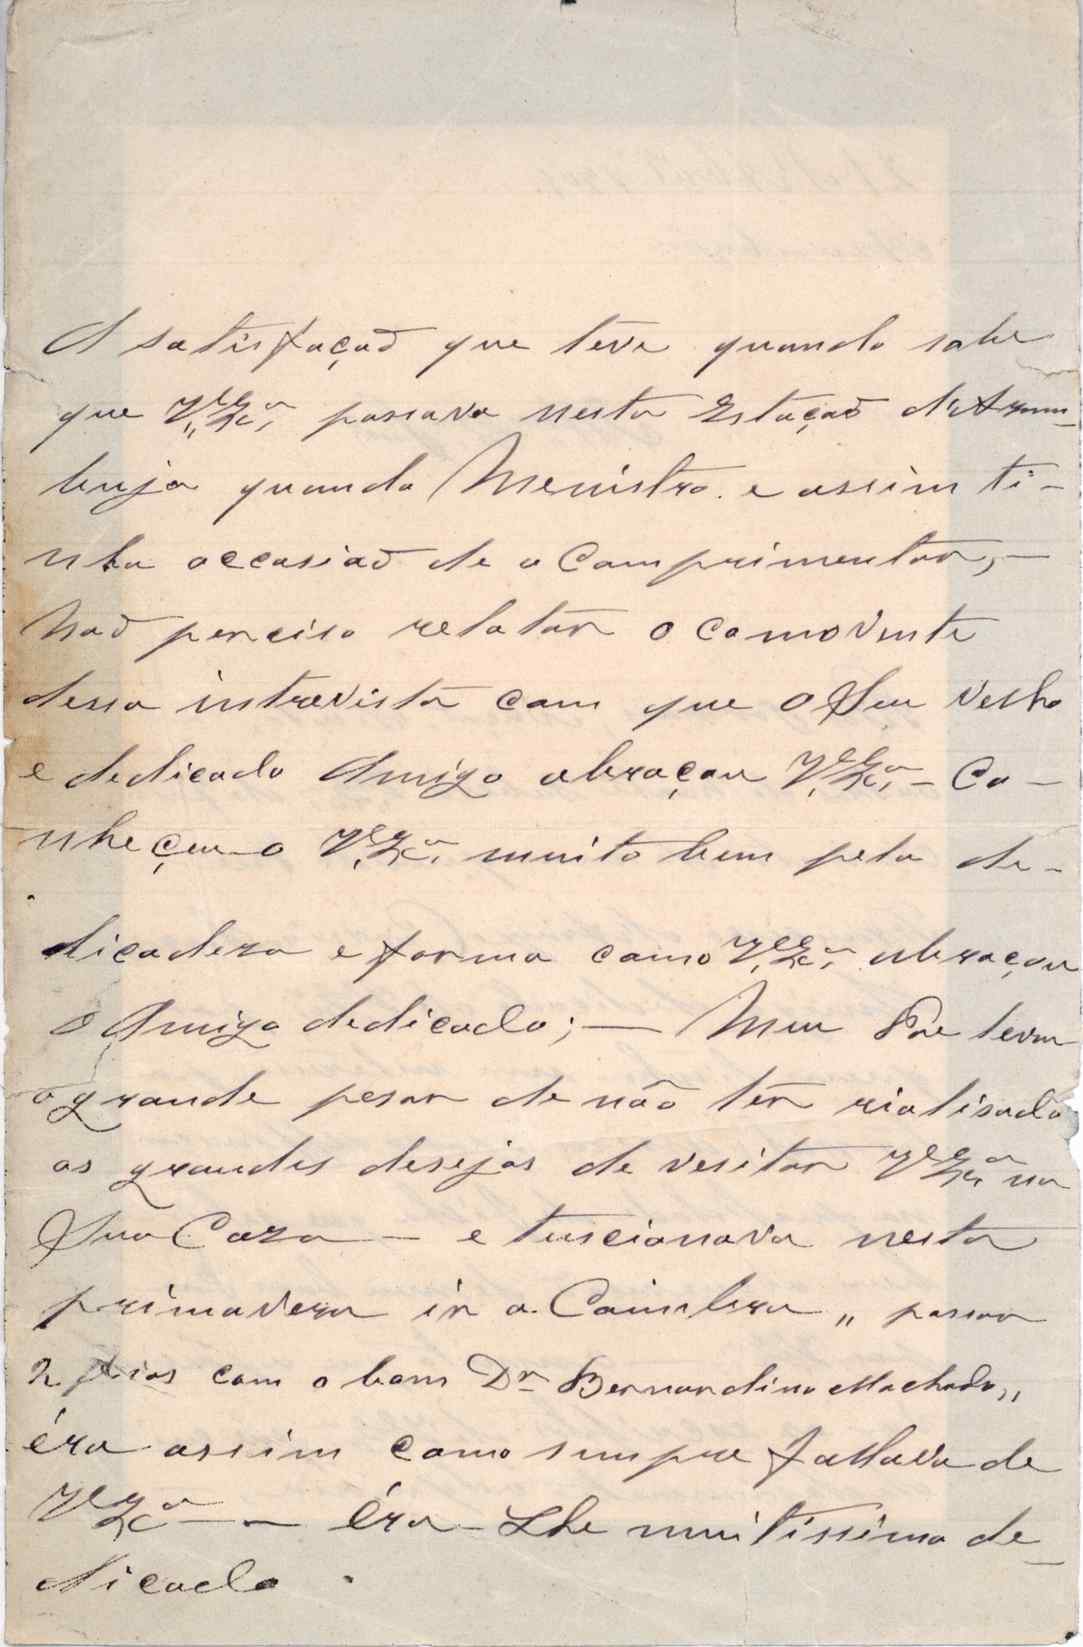 A satisfaçaõ que teve quando sabe
que V. Exc.ª passava nesta Estaçaõ d'Azam-
buja quando Menistro. e assim ti-
nha occasiaõ de o Comprimentar, —
Naõ perciso relatar o comovente
dessa intrevista com que o Seu Velho
e dedicado Amigo abraçou V. Exc.ª — Co-
nheçeu-o V. Exc.ª, muito bem pela de-
licadeza e forma como V. Exc.ª abraçou
o Amigo dedicado; — Meu Pae levou
o grande pesar de não têr rialisado
os grandes desejos de vesitar V. Exc.ª na
Sua Caza — e tuscionava nesta
primavera ir a Coimbra „ passar
2 dias com o bom Dr. Bernardino Machado „
éra assim como sempre fallava de
V. Exc.ª — — Éra-Lhe muitissimo de-
dicado.